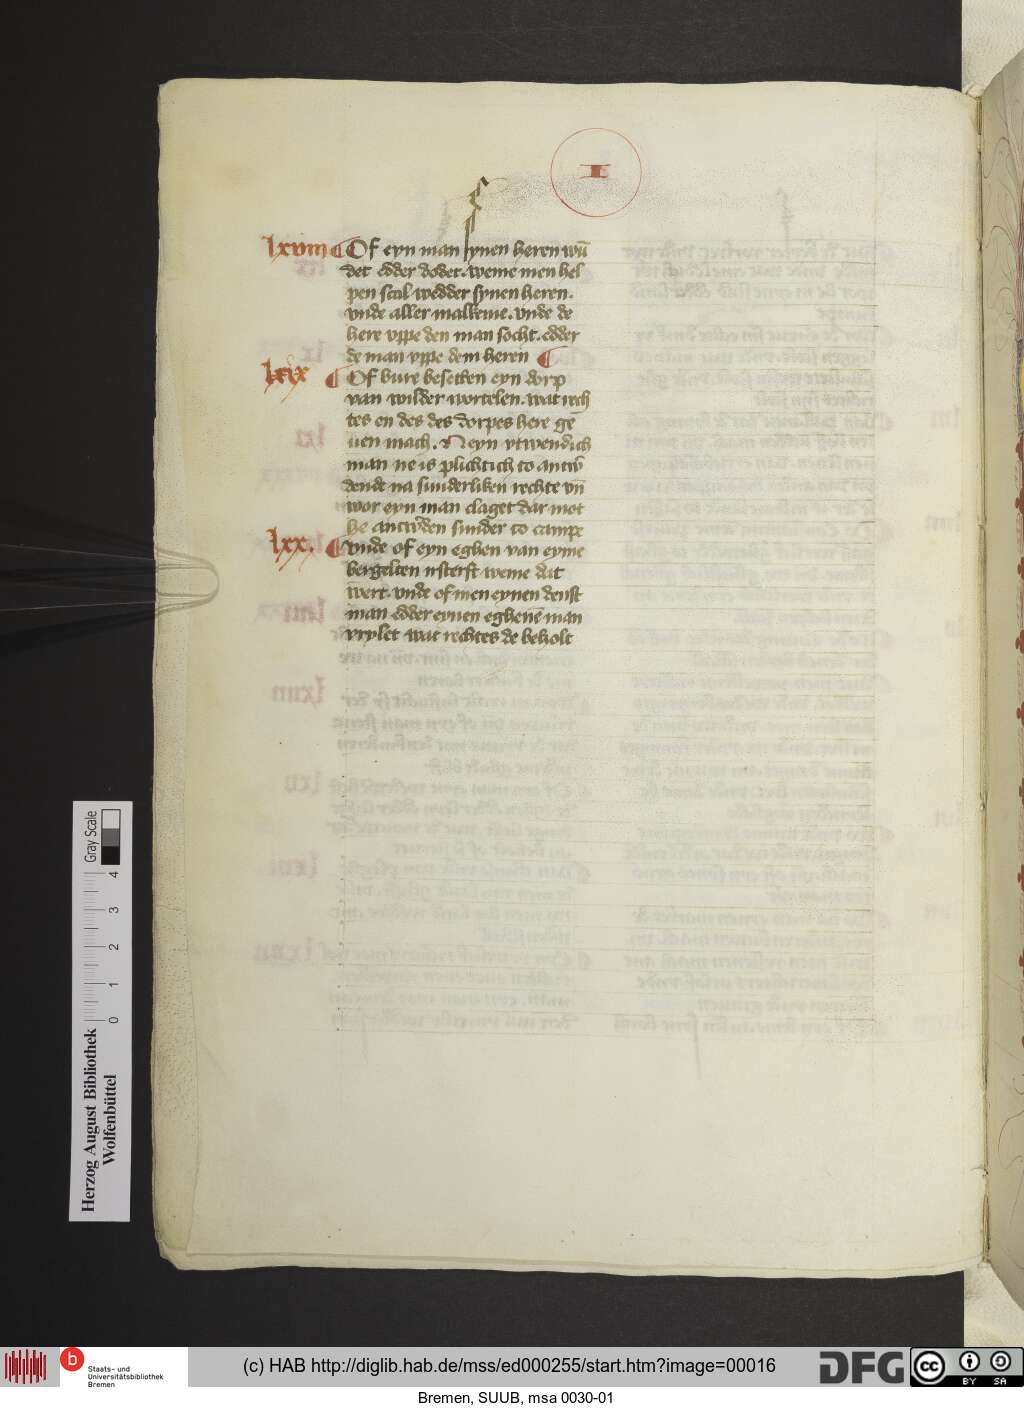 I
lxviii ¶ Of eyn man synen heren wū
det edder dodet. weme men hel
pen scal wedder synen heren.
vnde aller malkeme. vnde de
here vppe den man socht. edder
de man vppe dem heren ¶
lxix ¶ Of bure besetten eyn dorp
van wilder wortelen. wat rech
tes en des des dorpes here ge
uen mach. Neyn vtwendich
man ne is plichtich to antw
dende na sunderliken rechte vn̄
wor eyn man claget dar mot
he antwden sunder to campe
lxx. ¶ vnde of eyn eghen van eyme
wert. vnde of men eynen denst
man edder eynen eghenē man
vrylet wat rechtes de beholt
Herzog August Bibliothek
Wolfenbüttel
0 1 2 3 4
Gray Scale
b
Staats- und
Universitätsbibliothek
Bremen
(c) HAB http://diglib.hab.de/mss/ed000255/start.htm?image=00016
DFG
cc BY SA
Bremen, SUUB, msa 0030-01